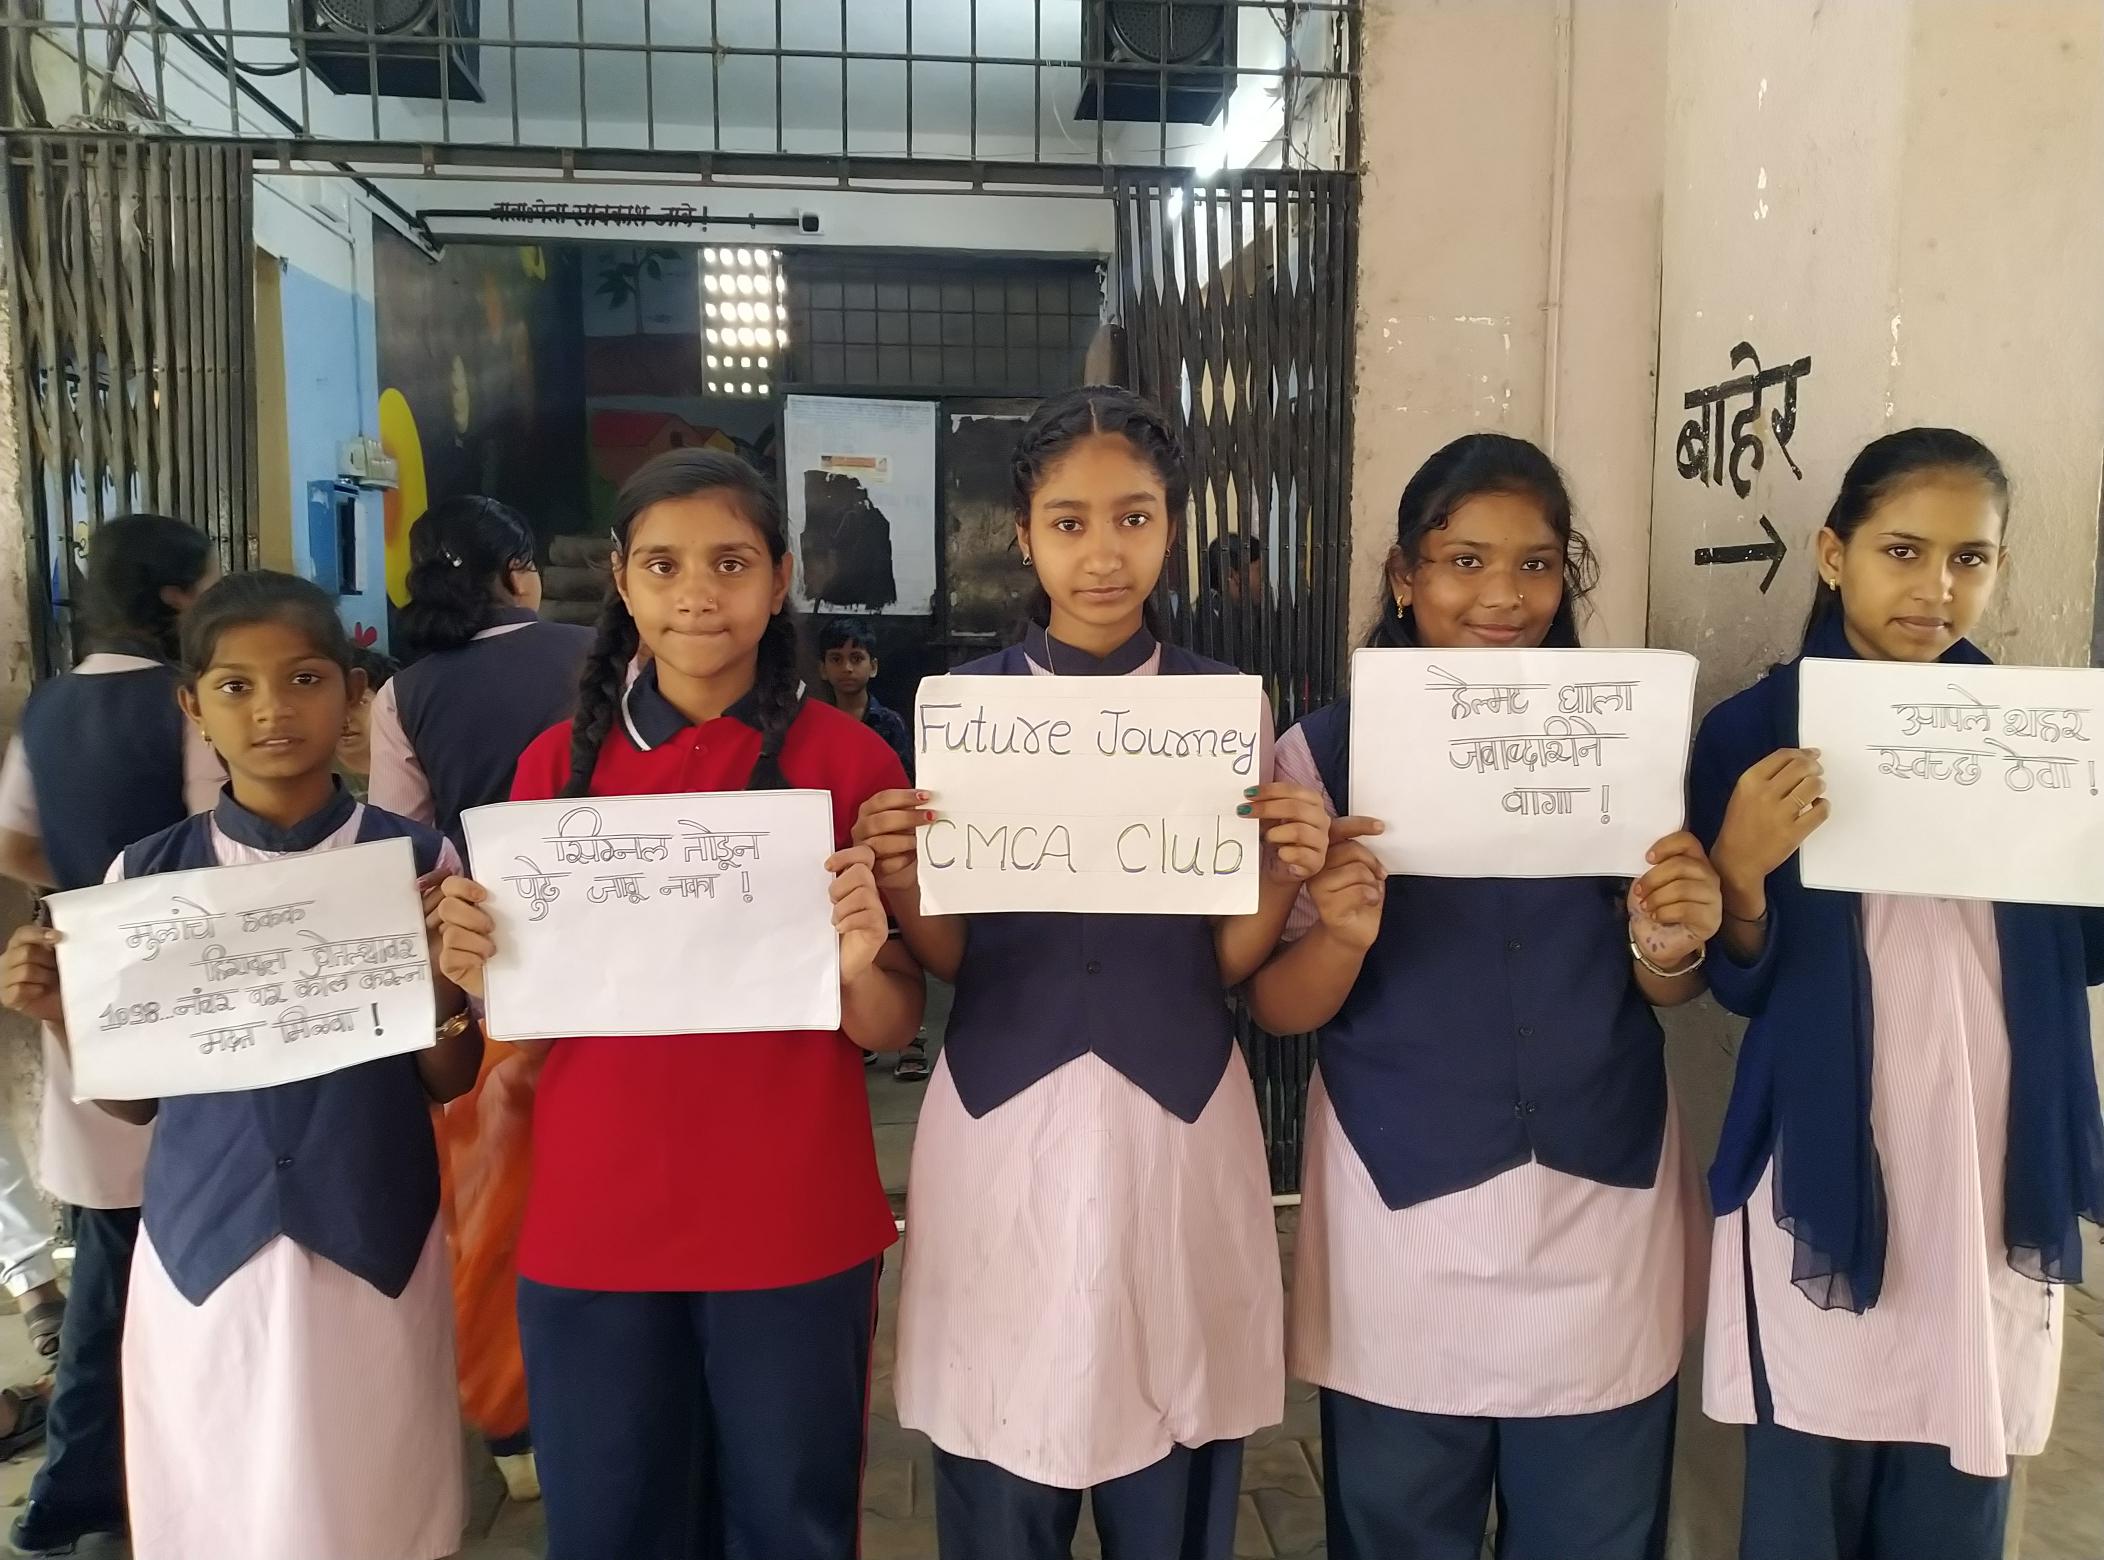 जाता येता सावकाश जावे!
बाहेर
→
मुलांचे हक्क
हिरावून घेतल्यावर
1098...नंबर वर कॉल करून
मदत मिळवा!
सिग्नल तोडून
पुढे जावू नका!
Future Journey
CMCA Club
हेल्मट घाला
जबाब्दारीने
वागा!
आपले शहर
स्वच्छ ठेवा!